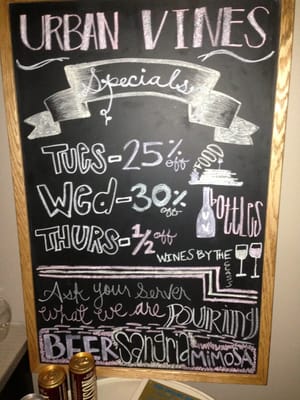 URBAN VINES
Specials
TUES-25% off FOOD
Wed-30% off Bottles
THURS-1/2 off WINES BY THE
Ask your server
what we are POURING
BEER Sangria MIMOSA